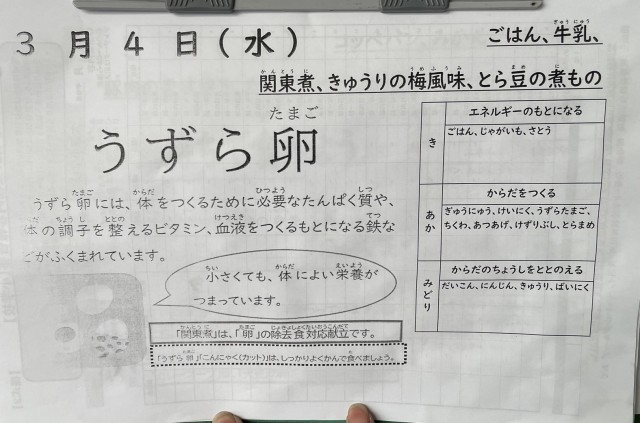 3月4日(水)
ごはん、牛乳、
関東煮、きゅうりの梅風味、とら豆の煮もの
うずら卵
うずら卵には、体をつくるために必要なたんぱく質や、
体の調子を整えるビタミン、血液をつくるもとになる鉄な
どがふくまれています。
小さくても、体によい栄養が
つまっています。
「関東煮」は、「卵」の除去食対応献立です。
「うずら卵」「こんにゃく(カット)」は、しっかりよくかんで食べましょう。
き
エネルギーのもとになる
ごはん、じゃがいも、さとう
あか
からだをつくる
ぎゅうにゅう、けいにく、うずらたまご、
ちくわ、あつあげ、けずりぶし、とらまめ
みどり
からだのちょうしをととのえる
だいこん、にんじん、きゅうり、ばいにく